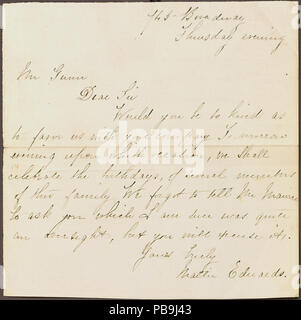 Broadway
Thursday evening
Mr Gunn
Dear Sir
Would you be so kind as
to favor us with your company
evening upon which we shall
celebrate the birthdays, of several members
of our family We forgot to tell Mr
to ask you which I am sure was quite
an oversight, but you will excuse it,
Yours truly
Mattie Edwards.
alamy
PB9J43